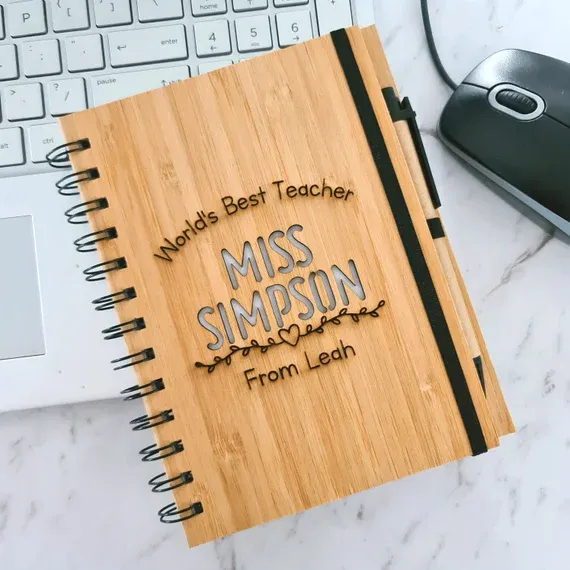 P
enter
home
4
5
6
pause
? /
alt
ctrl
World's Best Teacher
MISS
SIMPSON
From Leah